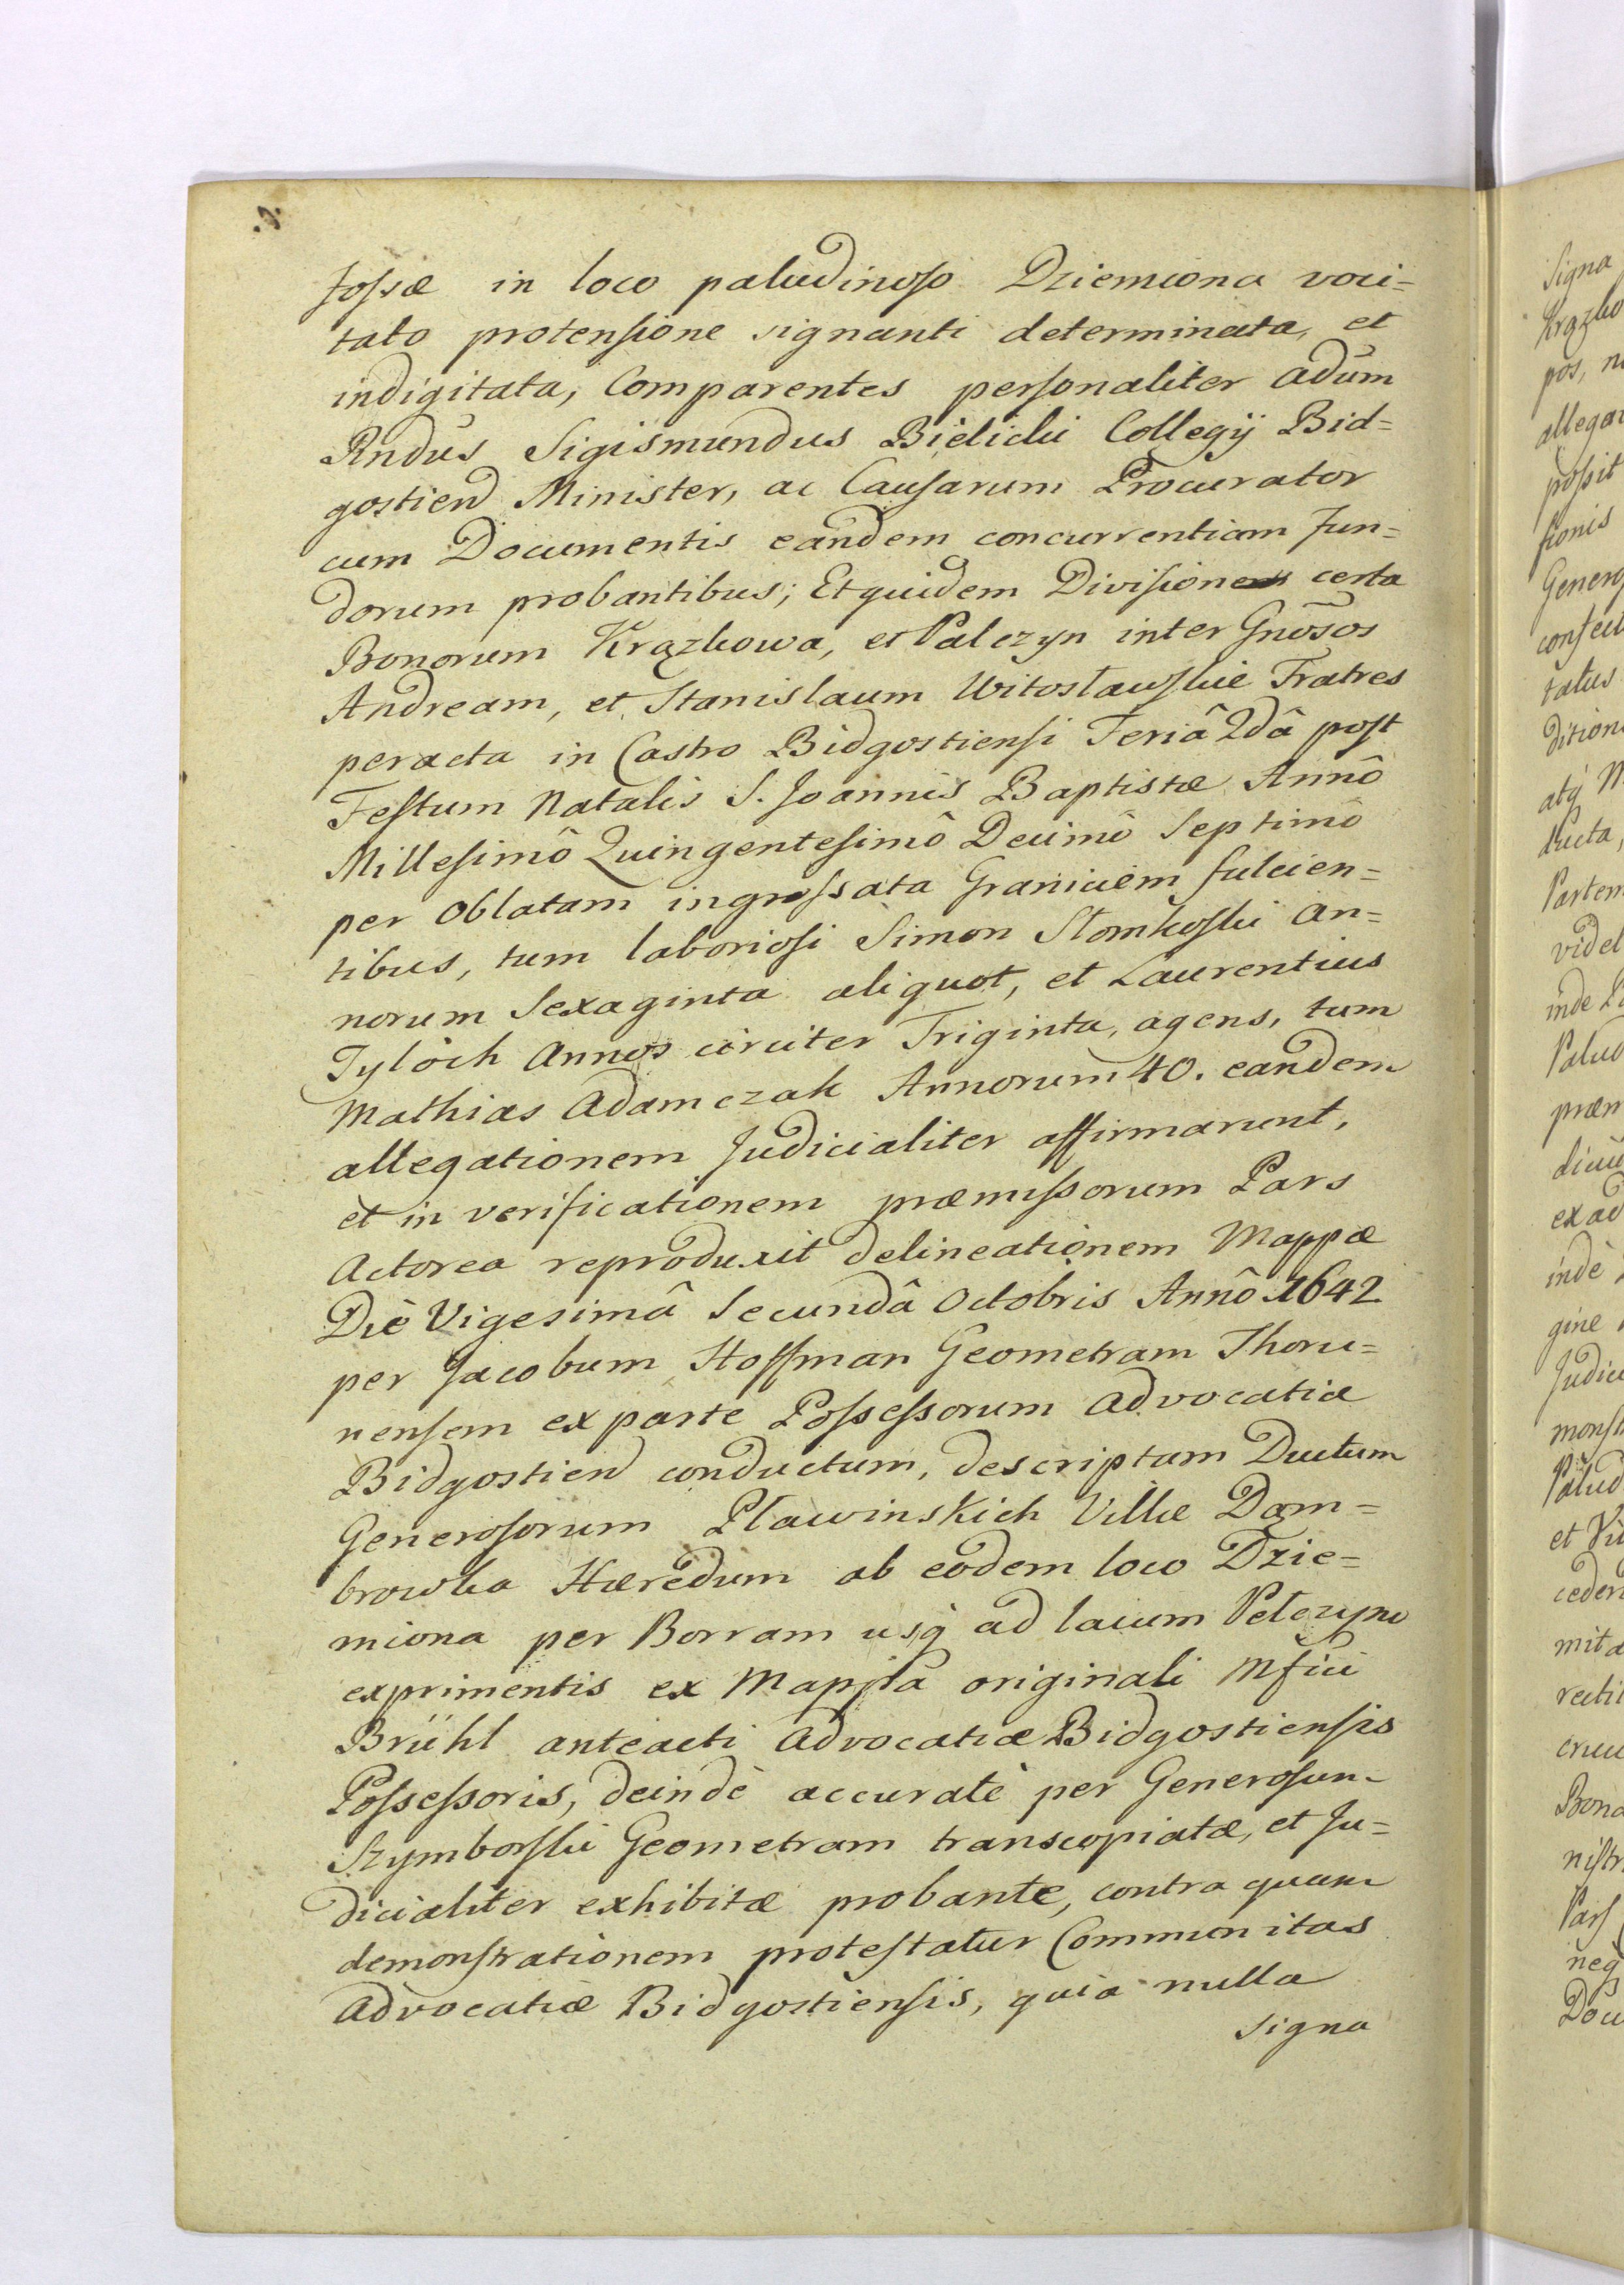 fossæ in loco paludinoso Dziemiona voci=
tato protensione signanti determinata, et
indigitata, Comparentes personaliter Adūm
Rndus Sigismundus Bielicki Collegÿ Bid=
gostien Minister, ac Causarum Procurator
cum Documentis eandem concurrentiam Fun=
dorum probantibus; Et quidem Divisione certa
Bonorum Krązkowa, et Palczyn inter Gnōsos
Andream, et Stanislaum Witosławskie Fratres
peracta in Castro Bidgostiensi Feriâ 2dâ post
Festum Natalis S. Joannis Baptistæ Annô
Millesimô Quingentesimô Decimô Septimô
per Oblatam ingrossata Graniciem fulcien=
tibus, tum laboriosi Simon Słomkoski an=
norum Sexaginta aliquot, et Laurentius
Tylòch Annos circiter Triginta, agens, tum
Mathias Adamczak Annorum 40. eandem
allegationem Judicialiter affirmarunt,
et in verificationem præmissorum Pars
Actorea reproduxit delineationem Mappæ
Diè Vigesimâ Secundâ Octobris Annô 1642
per Jacobum Hoffman Geometram Thoru=
nensem ex parte Possessorum Advocatiæ
Bidgostien conductum, descriptam Ductum
Generosorum Pławinskich Villæ Dąm=
browka Hæredum ab eodem loco Dzie=
miona per Borram usq̀ ad lacum Pelczyno
exprimentis ex Mappa originali Mfici
Brühl anteacti Advocatiæ Bidgostiensis
Possessoris, deindè accuratè per Generosum
Szymborski Geometram transcopiatæ, et Ju=
dicialiter exhibitæ probante, contra quam
demonstrationem protestatur Communitas
Advocatiæ Bidgostiensis, quia nulla
signa
Signa
pos,